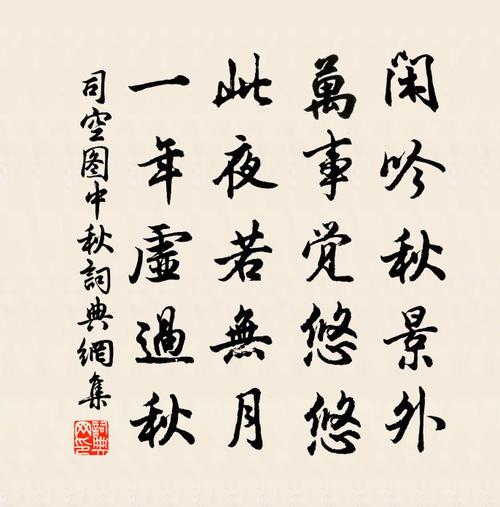 闲吟秋景外
萬事覺悠悠
此夜若無月
一年虛過秋
司空图中秋詞典網集
詞典網印